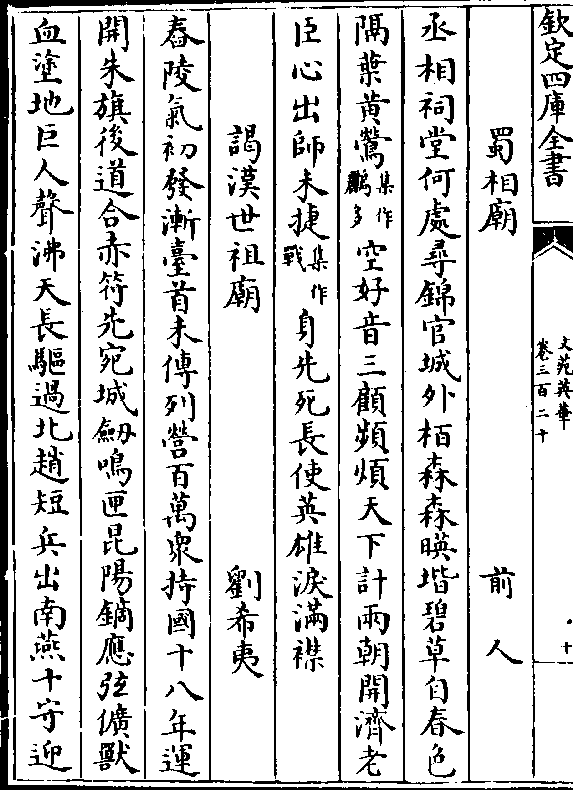 欽定四庫全書
文苑英華
卷三百二十
十
蜀相廟 前人
丞相祠堂何處尋錦官城外栢森森暎堦碧草自春色
隔葉黄鶯集作鸝多空好音三顧頻煩天下計兩朝開濟老
臣心出師未捷集作戰身先死長使英雄淚滿襟
謁漢世祖廟 劉希夷
舂陵氣初發漸臺首未傳列營百萬衆持國十八年運
開朱旗後道合赤符先宛城劒鳴匣昆陽鏑應弦獷獸
血塗地巨人聲沸天長驅過北趙短兵出南燕十守迎